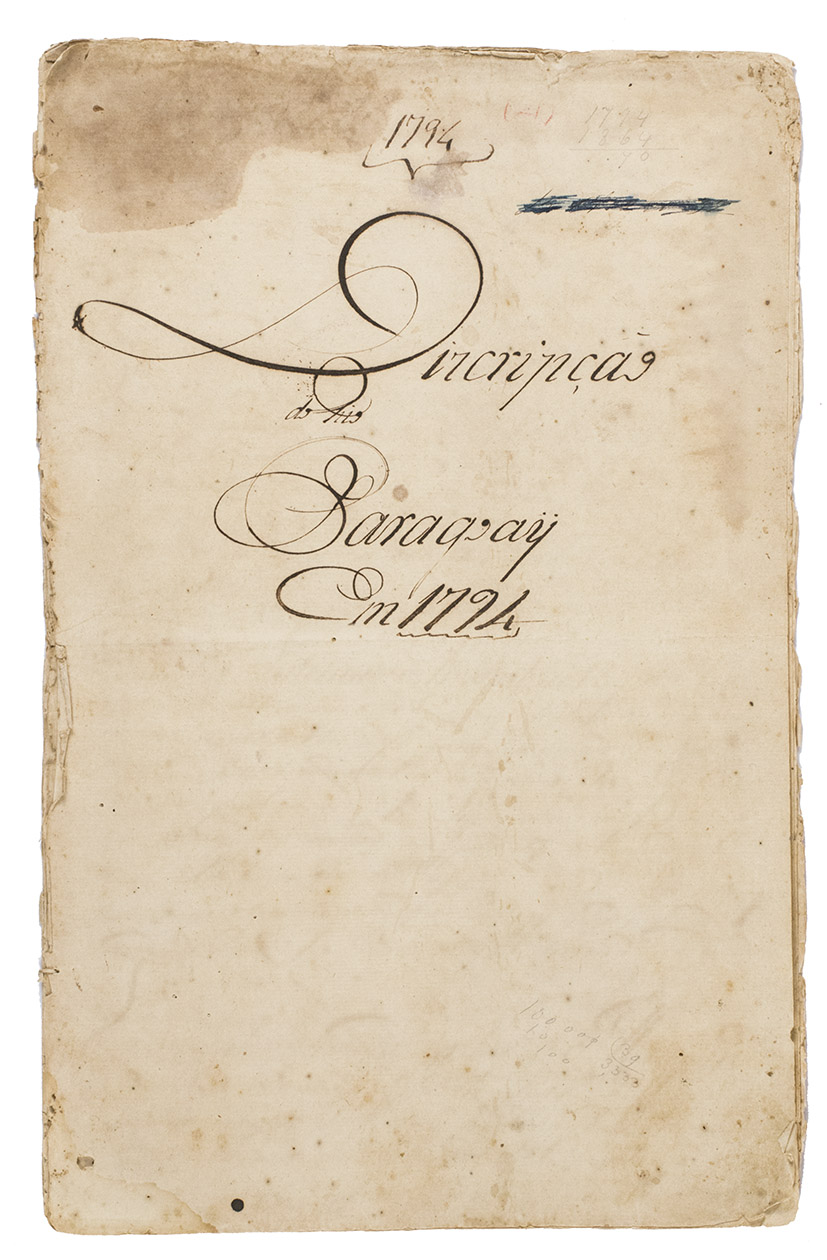 1794
1794
1864
70
Discripçaõ
do Rio
Paragoaÿ
Em 1794